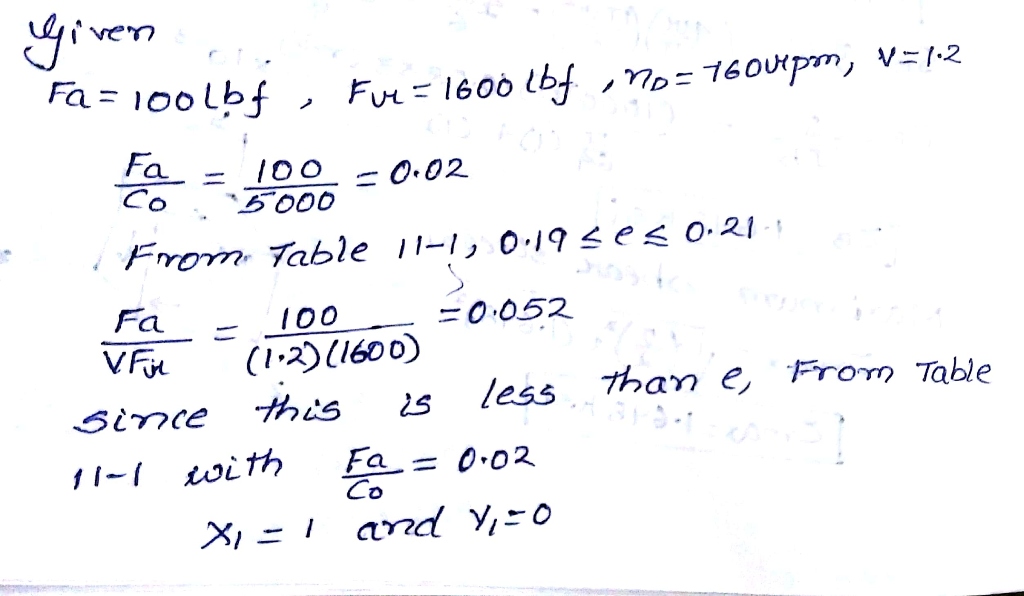 Given
Fa = 100 lbf , Fr = 1600 lbf , nD = 760 rpm, V = 1.2
Fa/Co = 100/5000 = 0.02
From Table 11-1, 0.19 ≤ e ≤ 0.21
Fa/VFr = 100/(1.2)(1600) = 0.052
since this is less than e, From Table
11-1 with Fa/Co = 0.02
X1 = 1 and Y1 = 0